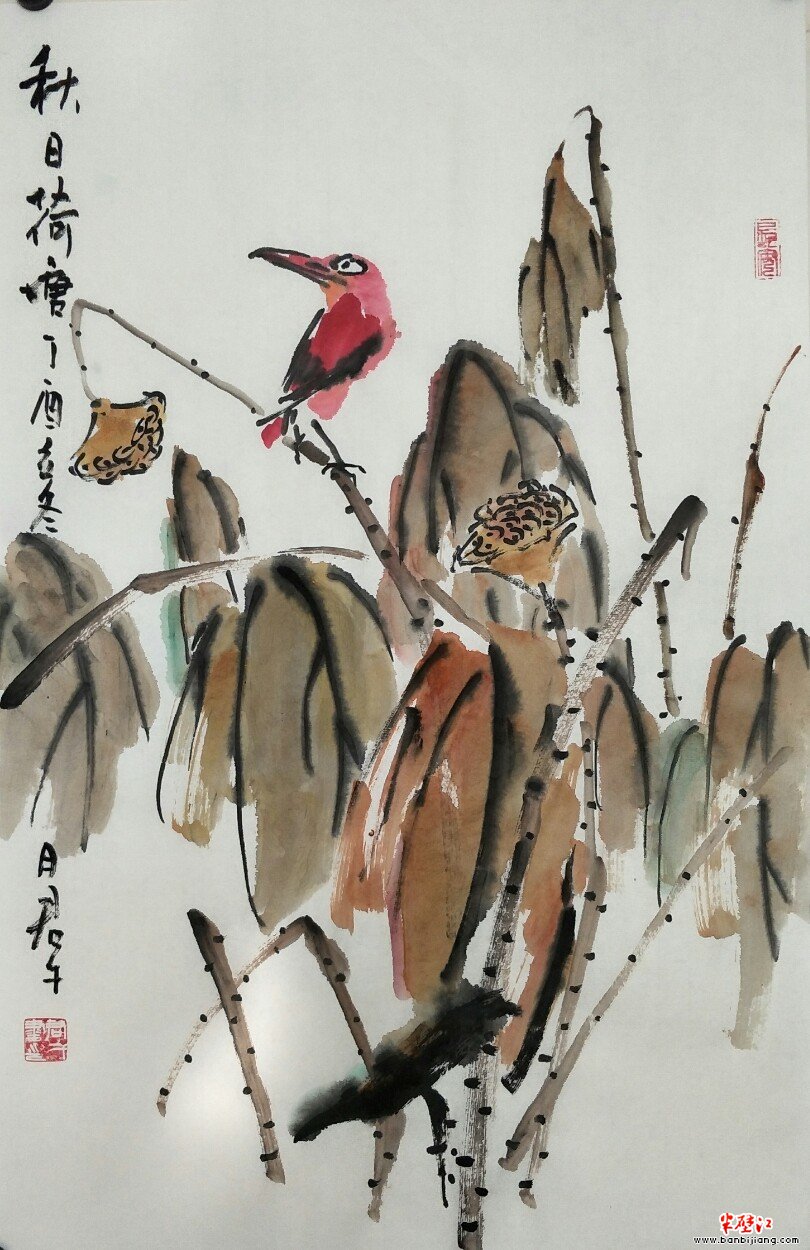 秋日荷塘丁酉立冬
日君午
半壁江
www.banbijiang.com